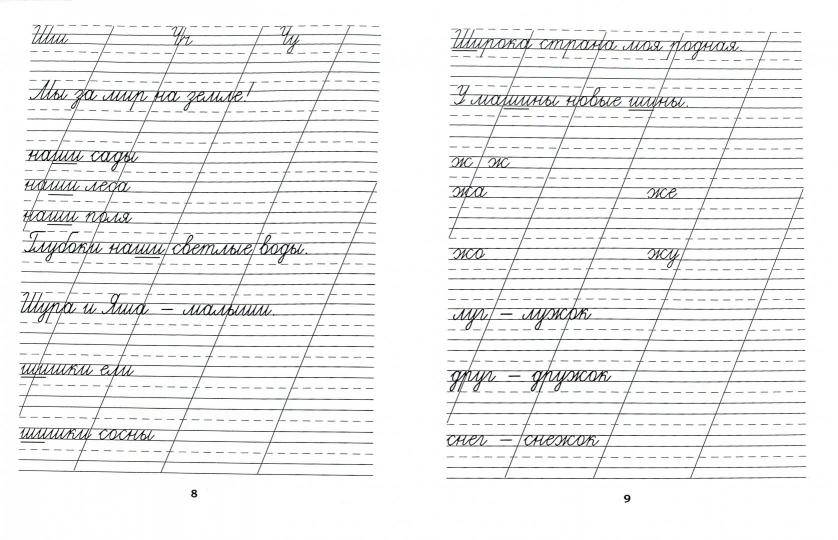 Шш Чу
Мы за мир на земле!
наши сады
наши леса
наши поля
Глубоки наши светлые воды.
Шура и Яша – малыши.
шишки ели
шишки сосны
8
Широка страна моя родная.
У машины новые шины.
ж ж
жа же
жо жу
луг – лужок
друг – дружок
снег – снежок
9